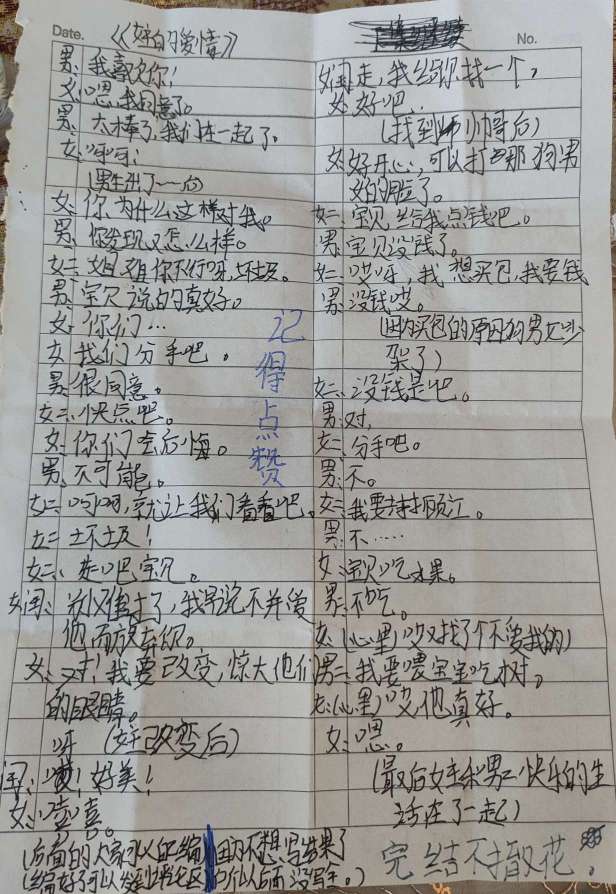 Date.
No.
《女主自的爱情》
男:我喜欢你!
女:嗯,我同意了。
男:太棒了,我们在一起了。
女:呵呵!
(男生出了一后)
女:你为什么这样对我。
男:你发现又怎么样。
女二:姐姐你不行呀,坏垃圾。
男:宝贝说的真好。
女:你们…
女:我们分手吧。
男:很同意。
女二:快点吧。
女:你们会后悔。
男:不可能。
女二:呵呵,就让我们看看吧。
女二:坏垃圾!
女二:走吧宝贝。
女闺:别难过了,我早说不并爱
他而放弃你。
女:对!我要改变,惊大他们
的眼睛。
(女主改变后)
闺:哇!好美!
女:嘻嘻。
(后面的大家可以自己编,因为不想写结果了
记得点赞
女闺:走,我给你找一个,
女:好吧.
(找到帅哥后)
女:好开心,可以打那狗男
女的脸了。
女二:宝贝给我点钱吧。
男:宝贝没钱了。
女二:哎呀,我想买包,我要钱
男:没钱哎。
(因为买包的原因狗男女吵
架了)
女二:没钱是吧。
男:对,
女二:分手吧。
男:不。
男:不……
女:宝贝吃水果。
男:不吃。
女:(心里)哎又找了个不爱我的)
男二:我要喂宝宝吃树。
女:(心里)哎他真好。
女:嗯。
(最后女主和男二快乐的生
活在了一起)
完结不撒花